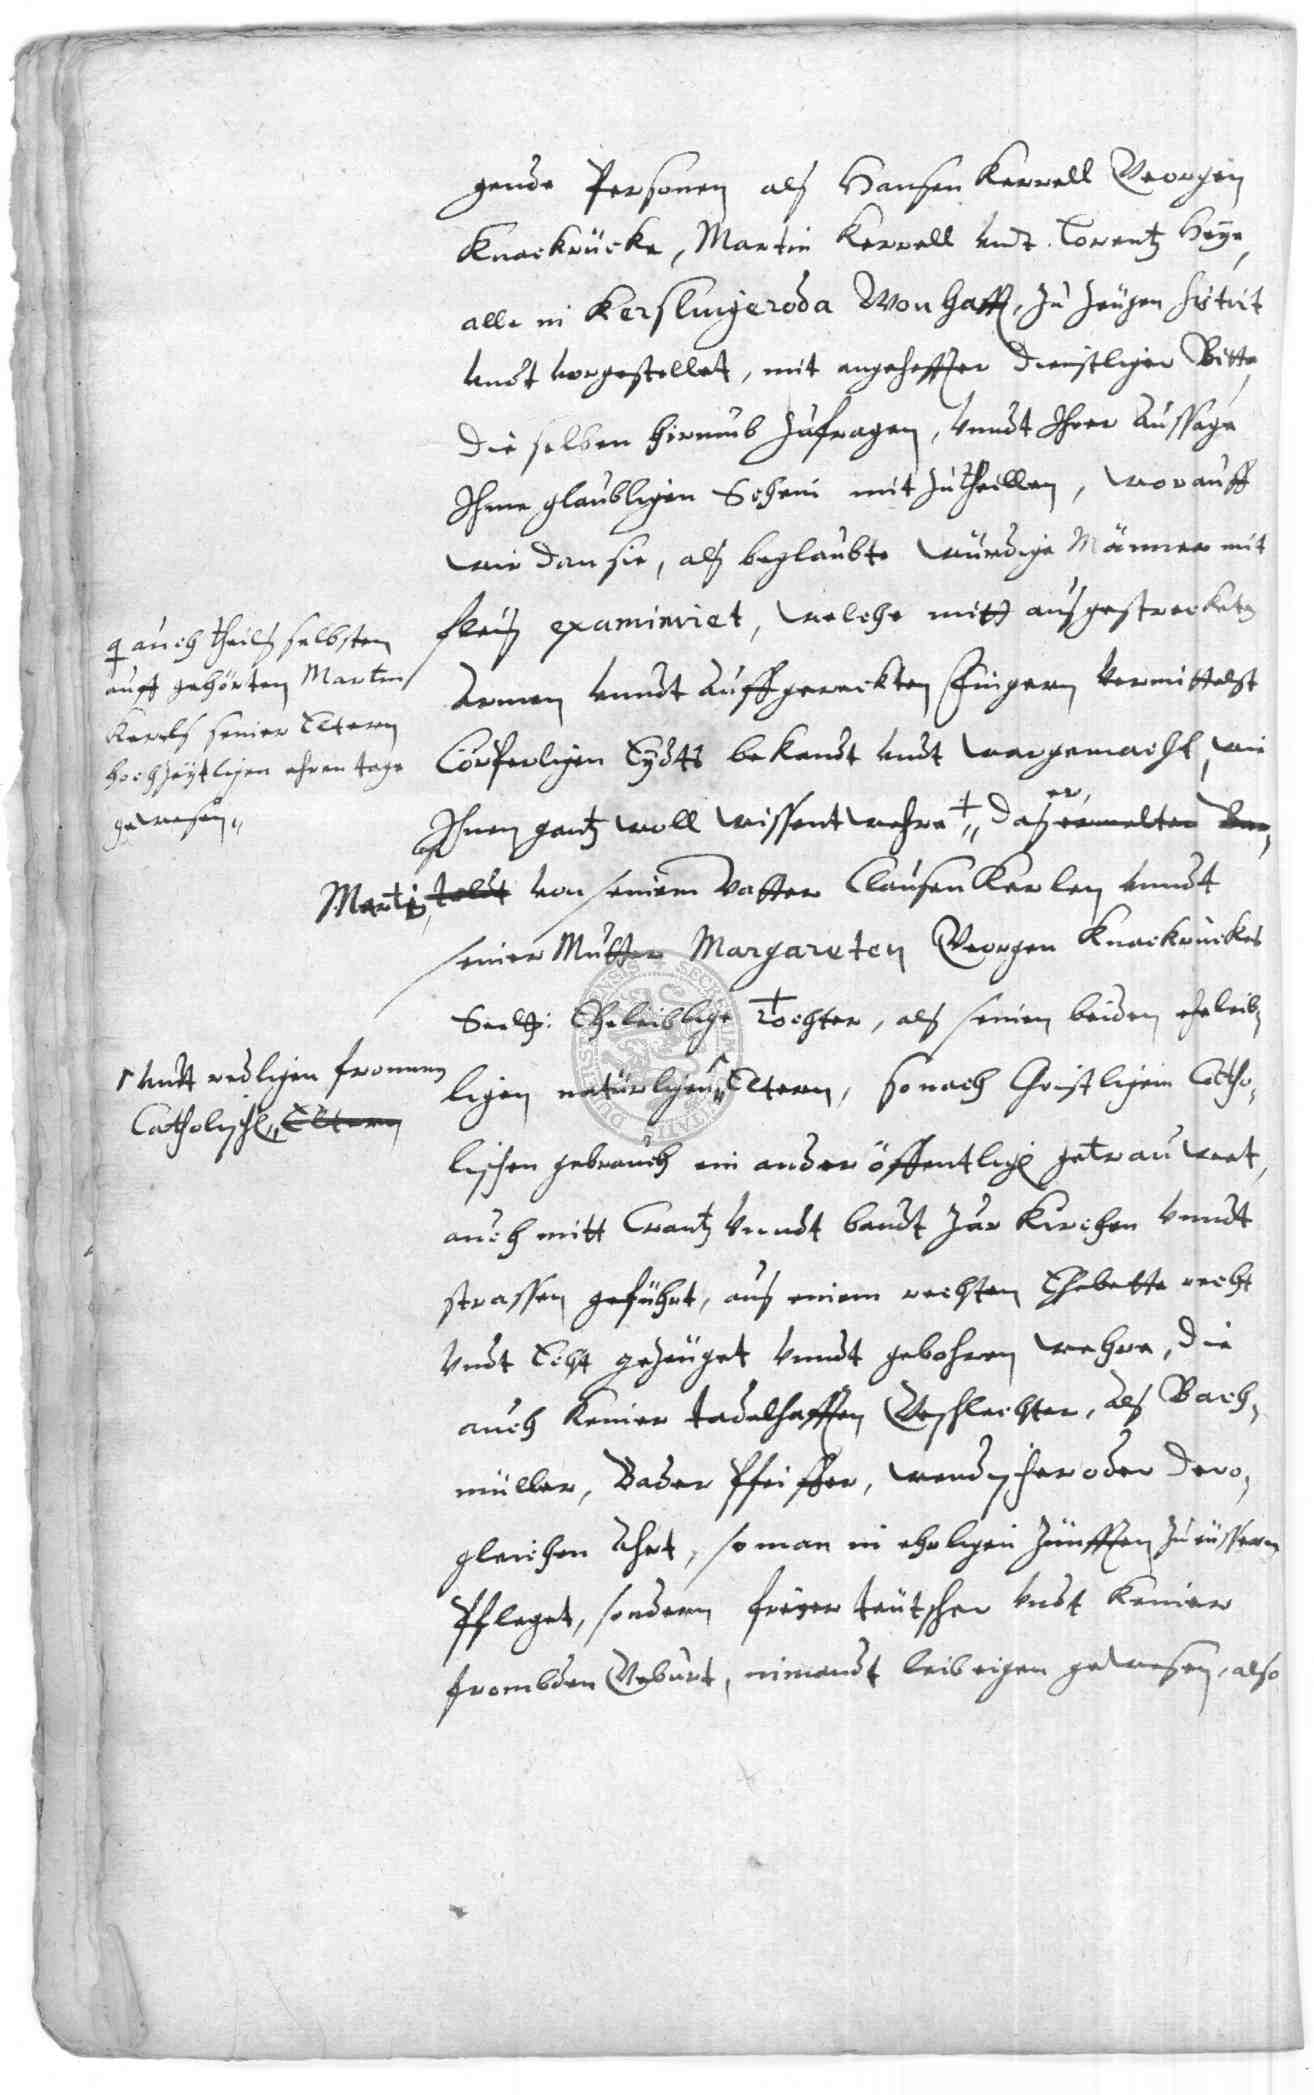 gende Personen als Hansen Kerrell Georgen
Knackrücke, Martin Kerrell undt Lorentz Heÿe,
alle in Kerslingeroda Wonhafft, zu zeugen sistirt
undt vorgestellet, mit angeheffter dienstliger Bitte,
die selben hirumb zufragen, unndt Ihrer Aussage
Ihme glaubligen Schein mit zutheillen, worauff
wir dan sie, als beglaubte würdige Männer mit
fleis examiniret, welche mitt ausgestreckten
Armen unndt auffgereckten Fingern vermittelst
Cörperligen Eÿdts bekandt undt wargemacht, wie
Ihnen gantz woll wissent wehre, das ermelter Bar-
er,
toldt von seinem Vatter Clausen Kerlen unndt
Martin
seiner Mutter Margareten Georgen Knackrückes
Seelg: Eheleiblige Tochter, als seinen beiden eheleib-
ligen natürligen Eltern, so nach Christligem Catho-
lischen gebrauch ein ander öffentlig getrauwet,
auch mitt Crantz unndt bandt zur Kirchen unndt
strassen geführt, aus einem rechten Ehebette recht
undt Echt gezeuget unndt gebohren wehre, die
auch keiner tadelhafften Geschlechter, als Bach-
müller, Bader Pfeiffer, wendischer oder dero-
gleichen Ahrt, so man in ehrligen Zünfften zu eüssern
Pfleget, sondern freÿer teütscher undt keiner
frembden Geburt, nimandt leibeigen gewesen, also
auch theils selbsten
auff gehörten Martin
Kerels seiner Eltern
hochzeÿtligen ehren tage
gewesen
undt redligen frommen
Catholischen Eltern